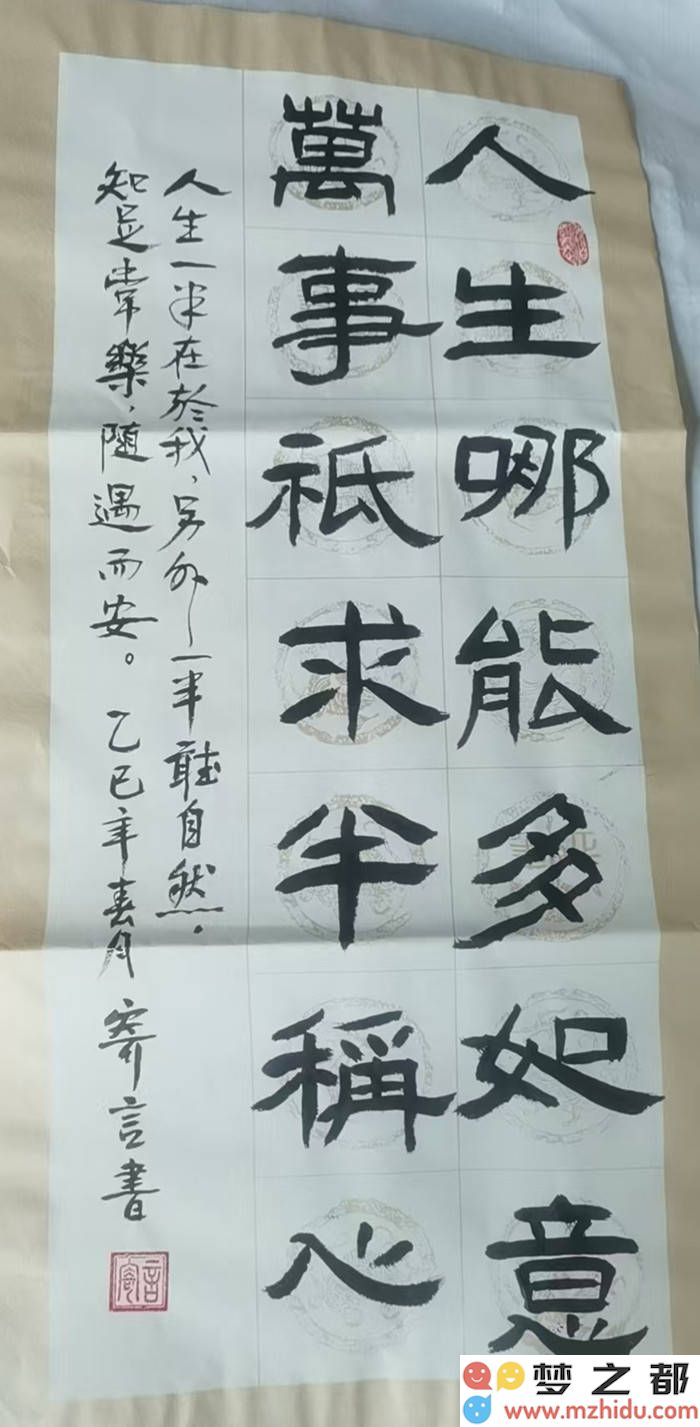 人生哪能多如意
萬事祇求半稱心
人生一半在於我，另外一半聽自然。
知足常樂，随遇而安。乙巳年春月 寄言書
梦之都
www.mzhidu.com